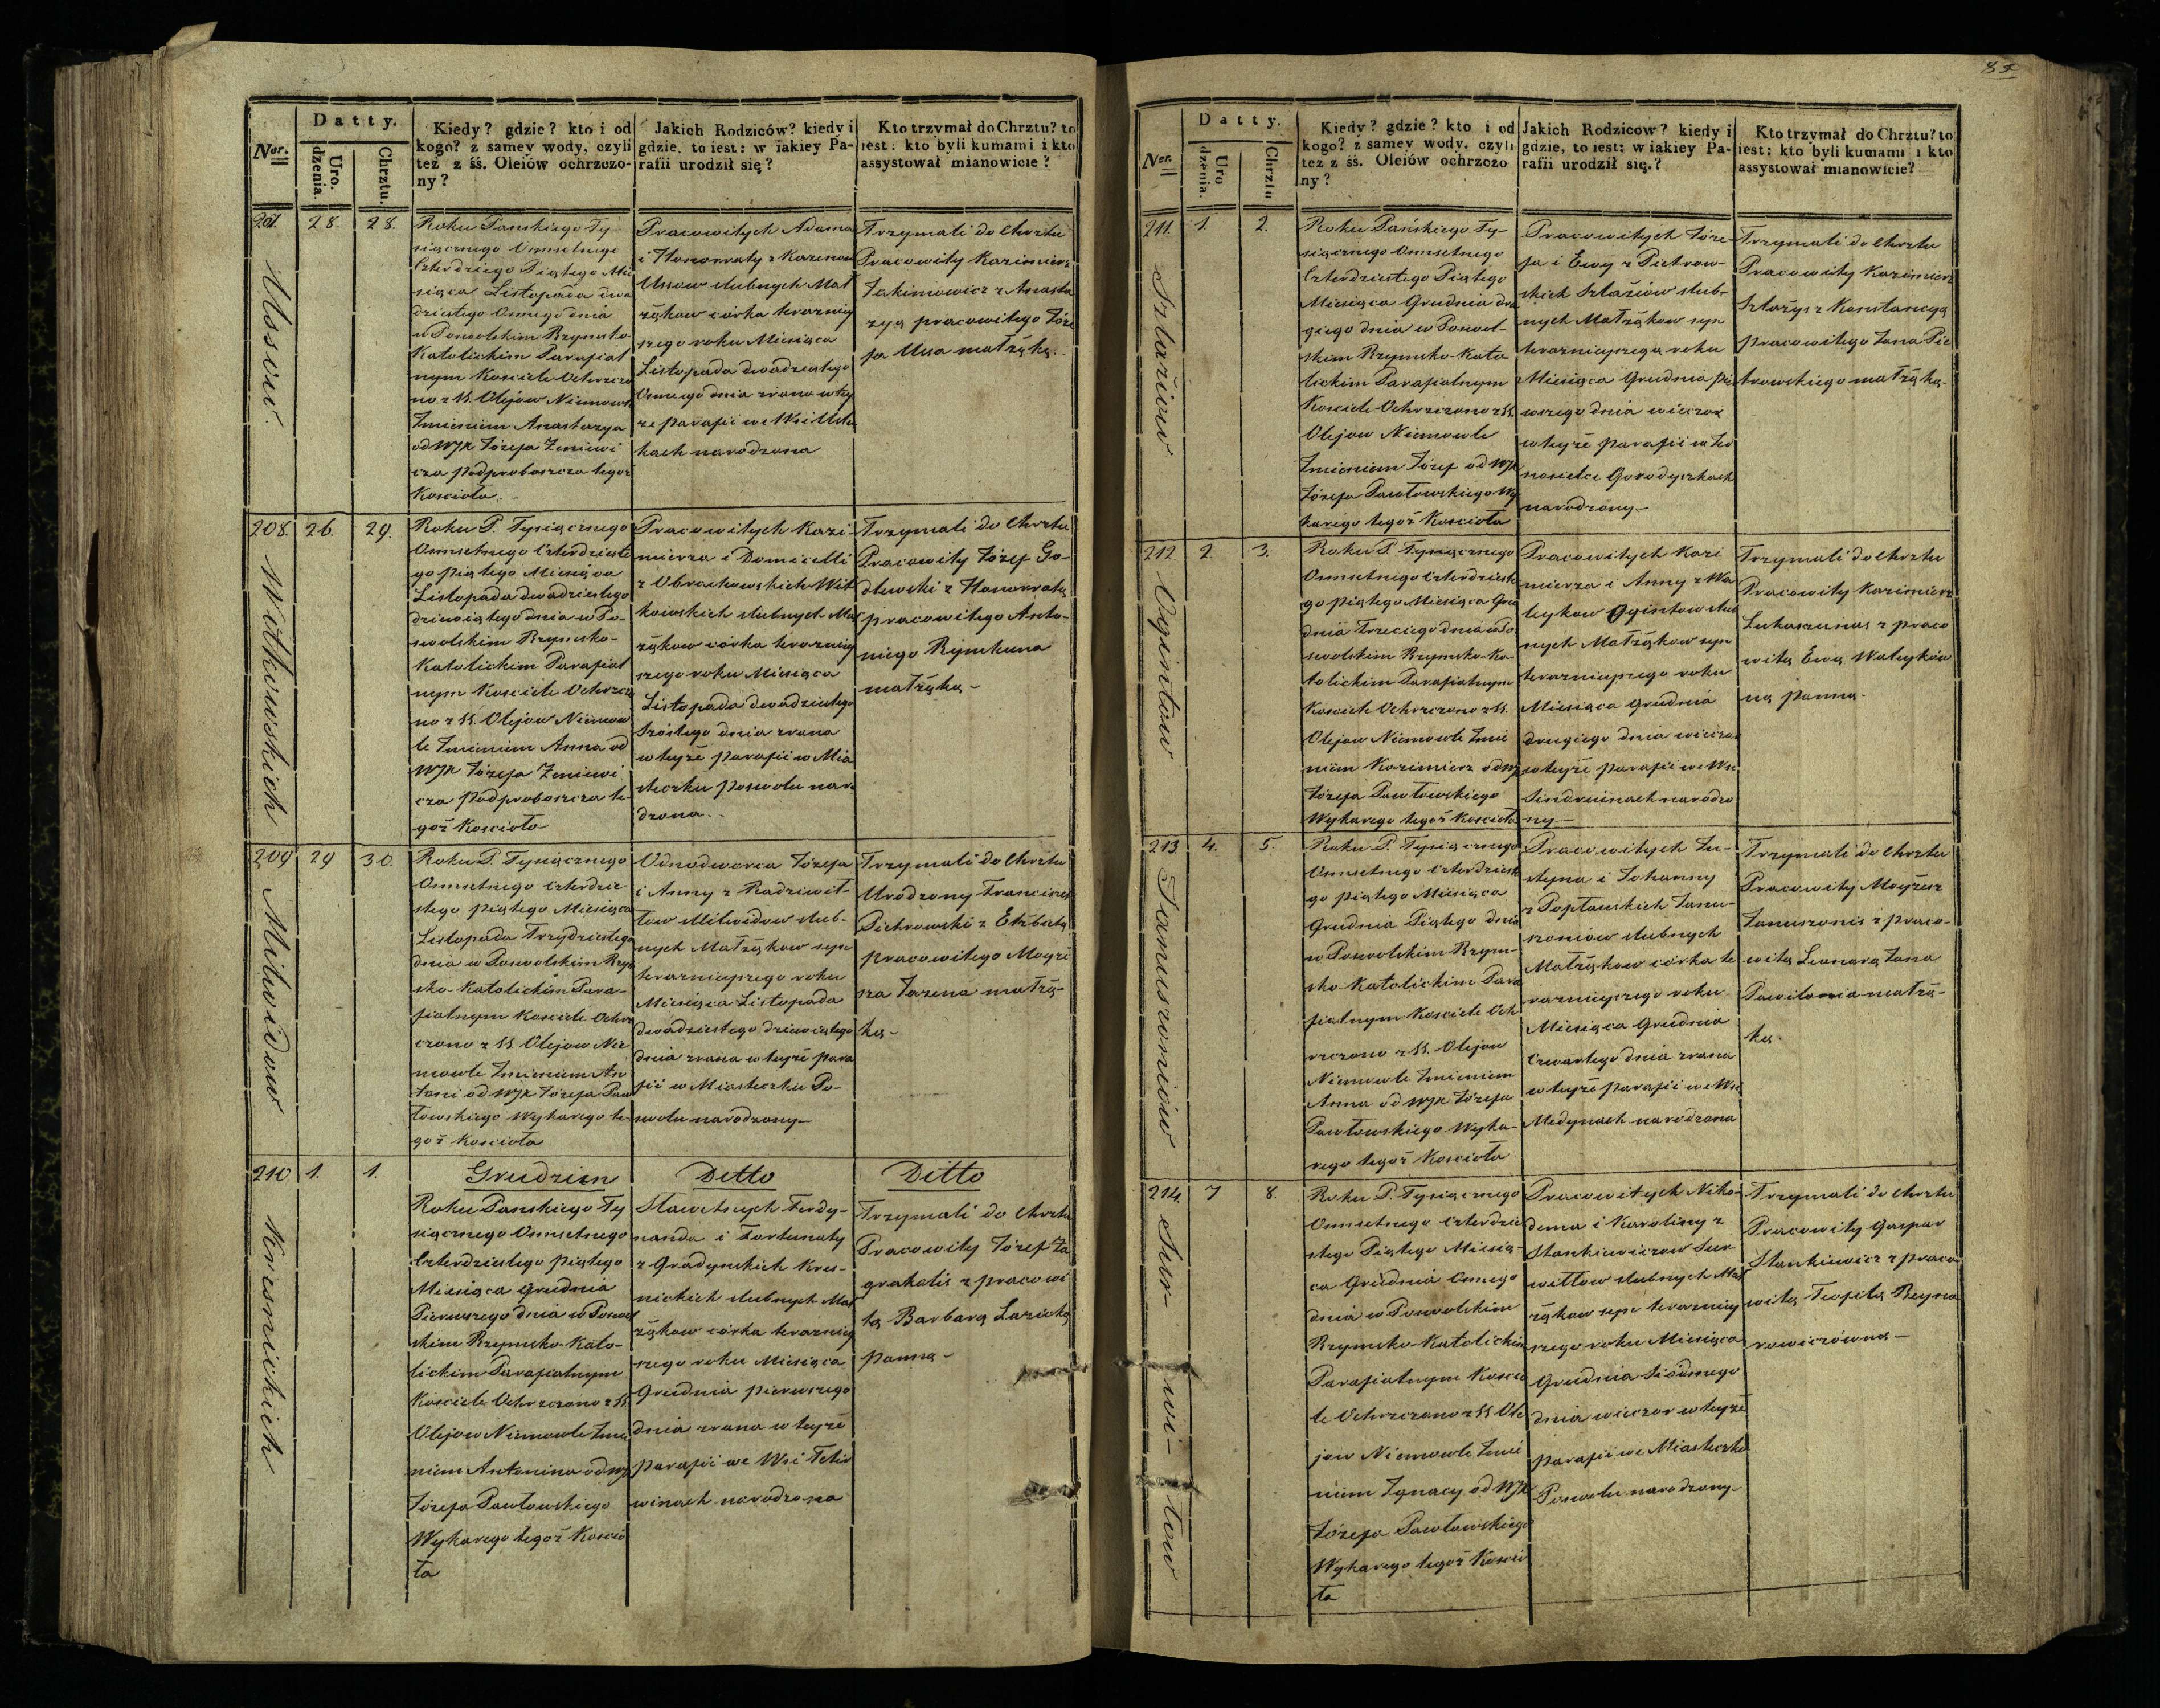 85
Ner.
Datty.
Uro.
dzenia.
Chrztu.
Kiedy? gdzie? kto i od
kogo? z samey wody, czyli
też z śś. Oleiów ochrzczo-
ny?
Jakich Rodziców? kiedy i
gdzie, to iest: w iakiey Pa-
rafii urodził się?
Kto trzymał do Chrztu? to
iest: kto byli kumami i kto
assystował mianowicie?
28. 28.
Ussow.
Roku Panskiego Ty-
siącznego Ośmsetnego
Czterdziego Piątego Mie
siąca Listopada dwa
dziestego Osmego dnia
w Poswolskim Rzymsko
Katolickim Parafial
nym Kosciele Ochrzczo
no z SS. Olejow Niemowle
Imieniem Anastazya
od WJX Józefa
cza Podproboszcza tegoż
Kościoła.
Pracowitych Adama
i Honorraty z
Ussow slubnych Mał
żąkow córka terazniey
szego roku Miesiąca
Listopada dwadziestego
Osmego dnia zrana w tey
że parafii we Wsi
kach narodzona
Trzymali do Chrztu
Pracowity Kazimierz
Jakimowicz z Anasta
zyą pracowitego Józe
fa Ussa małżąką.
208. 26. 29.
Witkowskich
Roku P. Tysiącznego
Osmsetnego Czterdzieste
go piątego Miesiąca
Listopada dwadziestego
dziewiątego dnia w Po-
swolskim Rzymsko-
Katolickim Parafial
nym Kosciele Ochrzczo
no z SS. Olejow Niemow
le Imieniem Anna od
WJX Józefa
cza Podproboszcza te-
goż Kościoła
Pracowitych Kazi-
mierza i Domicelli
z Obrachowskich Wit
kowskich slubnych Mał
żąkow córka terazniey
szego roku Miesiąca
Listopada dwadziestego
Szóstego dnia zrana
w teyże parafii w Mia
steczku Poswolu naro
dzona.
Trzymali do Chrztu
Pracowity Józef Go-
dlewski z Honorratą
pracowitego Anto-
niego Rymkuna
małżąką-
209 29 30.
Milwidow
Roku P. Tysiącznego
Osmsetnego Czterdzie
stego piątego Miesiąca
Listopada Trzydziestego
dnia w Poswolskim Rzym
sko-Katolickim Para-
fialnym Kosciele Ochrz
czono z SS. Olejow Nie
mowle Imieniem An
toni od WJX Józefa Paw
łowskiego Wykarego te-
goż Kościoła
Odnodworca Józefa
i Anny z Radziwił-
łow Milwidow slub-
nych Małżąkow syn
teraznieyszego roku
Miesiąca Listopada
dwadziestego dziewiątego
dnia zrana w teyże para
fii w Miasteczku Po-
swolu narodzony-
Trzymali do Chrztu
Urodzony Franciszek
Pietrowski z Elżbietą
pracowitego Moyże
sza małżą-
ką-
210 1. 1.
Kresnickich
Grudzien
Roku Panskiego Ty
siącznego Osmsetnego
Czterdziestego piątego
Miesiąca Grudnia
Pierwszego dnia w Poswol
skim Rzymsko-Kato-
lickim Parafialnym
Kosciele Ochrzczono z SS.
Olejow Niemowle Imie
niem Antonina od WJX
Józefa Pawłowskiego
Wykarego tegoż Koscio
ła
Ditto
Sławetnych Ferdy-
nanda i Fortunaty
z Gradynskich Kres-
nickich slubnych Mał
żąkow córka teraznie
szego roku Miesiąca
Grudnia pierwszego
dnia zrana w teyże
parafii we Wsi Tetir
winach narodzona
Ditto
Trzymali do Chrztu
Pracowity Józef Za
grakalis z pracowi
tą Barbarą Laricką
panną-
Ner.
Datty.
Uro
dzenia.
Chrztu
Kiedy? gdzie? kto i od
kogo? z samey wody, czyli
też z śś. Oleiów ochrzczo
ny?
Jakich Rodzicow? kiedy i
gdzie, to iest: w iakiey Pa-
rafii urodził się.?
Kto trzymał do Chrztu? to
iest: kto byli kumami i kto
assystował mianowicie?
211. 1. 2.
Szlażiow
Roku Pańskiego Ty-
siącznego Osmsetnego
Czterdziestego Piątego
Miesiąca Grudnia dru
giego dnia w Poswol-
skim Rzymsko-Kato
lickim Parafialnym
Kosciele Ochrzczono z SS.
Olejow Niemowle
Imieniem Józef od WJX
Józefa Pawłowskiego Wy
karego tegoż Kościoła
Pracowitych Józe-
fa i Ewy z Pietrow-
skich Szlażiów slub-
nych Małżąkow syn
teraznieyszego roku
Miesiąca Grudnia pie
wszego dnia wieczor
w teyże parafii w
Gorodyszkach
narodzony-
Trzymali do Chrztu
Pracowity Kazimierz
Szlażys z Konstancyą
pracowitego Jana Pie
trowskiego małżąką-
212 2. 3.
Ogintow
Roku P. Tysiącznego
Osmsetnego Czterdzieste
go piątego Miesiąca Gru
dnia Trzeciego dnia w Po
swolskim Rzymsko-Ka-
tolickim Parafialnym
Kosciele Ochrzczono z SS.
Olejow Niemowle Imie
niem Kazimierz od WJX
Józefa Pawłowskiego
Wykarego tegoż Kościoła
Pracowitych Kazi
mierza i Anny z Wa
leykow Ogintow slub
nych Małżąkow syn
teraznieyszego roku
Miesiąca Grudnia
drugiego dnia wieczor
w teyże parafii we Wsi
Sindruinach narodzo
ny-
Trzymali do Chrztu
Pracowity Kazimierz
Lukaszunas z praco
witą Ewą Waleyków
ną panną-
213 4. 5.
Januszoniow
Roku P. Tysiącznego
Osmsetnego Czterdzieste
go piątego Miesiąca
Grudnia Piątego dnia
w Poswolskim Rzym-
sko-Katolickim Para
fialnym Kosciele Och
rzczono z SS. Olejow
Niemowle Imieniem
Anna od WJX Józefa
Pawłowskiego Wyka-
rego tegoż Kościoła
Pracowitych Ju-
styna i Johanny
z Popławskich Janu-
szoniow slubnych
Małżąkow córka te
raznieyszego roku
Miesiąca Grudnia
Czwartego dnia zrana
w teyże parafii we Wsi
Medynach narodzona
Trzymali do Chrztu
Pracowity Moyżesz
Januszonis z praco-
witą Leonarą Jana
Pawilonia małżą-
ką-
214. 7 8.
Sur-wi-łow
Roku P. Tysiącznego
Osmsetnego Czterdzie
stego Piątego Miesią-
ca Grudnia Osmego
dnia w Poswolskim
Rzymsko-Katolickim
Parafialnym Koscie
le Ochrzczono z SS Ole
jow Niemowle Imie
niem Ignacy od WJX
Józefa Pawłowskiego
Wykarego tegoż Koscio
ła
Pracowitych Niko-
dema i Karoliny z
Stankiewiczow Sur
wiłłow slubnych Mał
żąkow syn terazniey
szego roku Miesiąca
Grudnia Siódmego
dnia wieczor w teyże
parafii we Miasteczku
Poswolu narodzony-
Trzymali do Chrztu
Pracowity Gaspar
Stankiewicz z praco
witą Teofilą Reyna
rowiczówną-